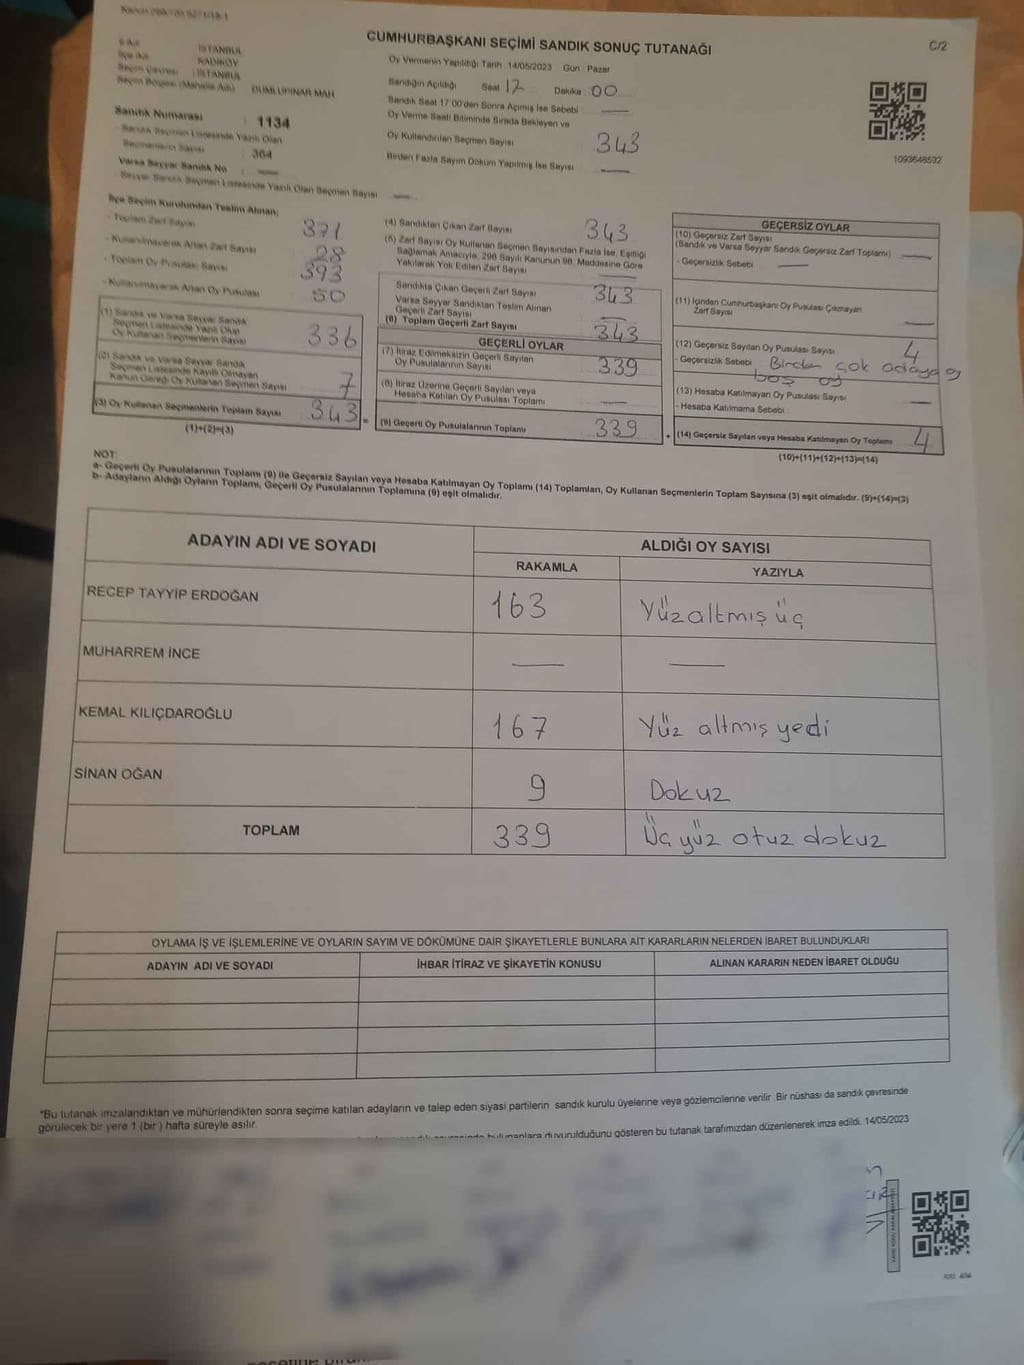 CUMHURBAŞKANI SEÇİMİ SANDIK SONUÇ TUTANAĞI
C/2
İl Adı : İSTANBUL
İlçe Adı : KADIKÖY
Seçim Çevresi : İSTANBUL
Seçim Bölgesi (Mahalle Adı) : DUMLUPINAR MAH
Oy Vermenin Yapıldığı Tarih 14/05/2023 Gün : Pazar
Sandığın Açıldığı Saat 17 Dakika : 00
Sandık Saat 17:00'den Sonra Açımış İse Sebebi : —
Oy Verme Saati Bitiminde Sırada Bekleyen ve
Oy Kullandırılan Seçmen Sayısı 343
Birden Fazla Sayım Döküm Yapılmış İse Sayısı —
1093648592
Sandık Numarası : 1134
- Sandık Seçmen Listesinde Yazılı Olan
Seçmenlerin Sayısı : 364
Varsa Seyyar Sandık No : —
- Seyyar Sandık Seçmen Listesinde Yazılı Olan Seçmen Sayısı : —
İlçe Seçim Kurulundan Teslim Alınan;
- Toplam Zarf Sayısı 371
- Kullanılmayarak Artan Zarf Sayısı 28
- Toplam Oy Pusulası Sayısı 393
- Kullanılmayarak Artan Oy Pusulası 50
(1) Sandık ve Varsa Seyyar Sandık
Seçmen Listesinde Yazılı Olup
Oy Kullanan Seçmenlerin Sayısı 336
(2) Sandık ve Varsa Seyyar Sandık
Seçmen Listesinde Kayıtlı Olmayan
Kanun Gereği Oy Kullanan Seçmen Sayısı 7
(3) Oy Kullanan Seçmenlerin Toplam Sayısı 343 =
(1)+(2)=(3)
(4) Sandıktan Çıkan Zarf Sayısı 343
(5) Zarf Sayısı Oy Kullanan Seçmen Sayısından Fazla İse, Eşitliği
Sağlamak Amacıyla, 298 Sayılı Kanunun 98. Maddesine Göre
Yakılarak Yok Edilen Zarf Sayısı —
Sandıkta Çıkan Geçerli Zarf Sayısı 343
Varsa Seyyar Sandıktan Teslim Alınan
Geçerli Zarf Sayısı —
(6) Toplam Geçerli Zarf Sayısı 343
GEÇERLİ OYLAR
(7) İtiraz Edilmeksizin Geçerli Sayılan
Oy Pusulalarının Sayısı 339
(8) İtiraz Üzerine Geçerli Sayılan veya
Hesaba Katılan Oy Pusulası Toplamı —
(9) Geçerli Oy Pusulalarının Toplamı 339 +
GEÇERSİZ OYLAR
(10) Geçersiz Zarf Sayısı
(Sandık ve Varsa Seyyar Sandık Geçersiz Zarf Toplamı) —
- Geçersizlik Sebebi : —
(11) İçinden Cumhurbaşkanı Oy Pusulası Çıkmayan
Zarf Sayısı —
(12) Geçersiz Sayılan Oy Pusulası Sayısı 4
- Geçersizlik Sebebi : Birden çok adaya oy
boş oy
(13) Hesaba Katılmayan Oy Pusulası Sayısı —
- Hesaba Katılmama Sebebi :
(14) Geçersiz Sayılan veya Hesaba Katılmayan Oy Toplamı 4
(10)+(11)+(12)+(13)=(14)
NOT:
a- Geçerli Oy Pusulalarının Toplamı (9) ile Geçersiz Sayılan veya Hesaba Katılmayan Oy Toplamı (14) Toplamları, Oy Kullanan Seçmenlerin Toplam Sayısına (3) eşit olmalıdır. (9)+(14)=(3)
b- Adayların Aldığı Oyların Toplamı, Geçerli Oy Pusulalarının Toplamına (9) eşit olmalıdır.
ADAYIN ADI VE SOYADI
ALDIĞI OY SAYISI
RAKAMLA YAZIYLA
RECEP TAYYİP ERDOĞAN 163 Yüzaltmış üç
MUHARREM İNCE — —
KEMAL KILIÇDAROĞLU 167 Yüz altmış yedi
SİNAN OĞAN 9 Dokuz
TOPLAM 339 Üç yüz otuz dokuz
OYLAMA İŞ VE İŞLEMLERİNE VE OYLARIN SAYIM VE DÖKÜMÜNE DAİR ŞİKAYETLERLE BUNLARA AİT KARARLARIN NELERDEN İBARET BULUNDUKLARI
ADAYIN ADI VE SOYADI İHBAR İTİRAZ VE ŞİKAYETİN KONUSU ALINAN KARARIN NEDEN İBARET OLDUĞU
*Bu tutanak imzalandıktan ve mühürlendikten sonra seçime katılan adayların ve talep eden siyasi partilerin sandık kurulu üyelerine veya gözlemcilerine verilir. Bir nüshası da sandık çevresinde
görülecek bir yere 1 (bir) hafta süreyle asılır.
bulunanlara duyurulduğunu gösteren bu tutanak tarafımızdan düzenlenerek imza edildi. 14/05/2023